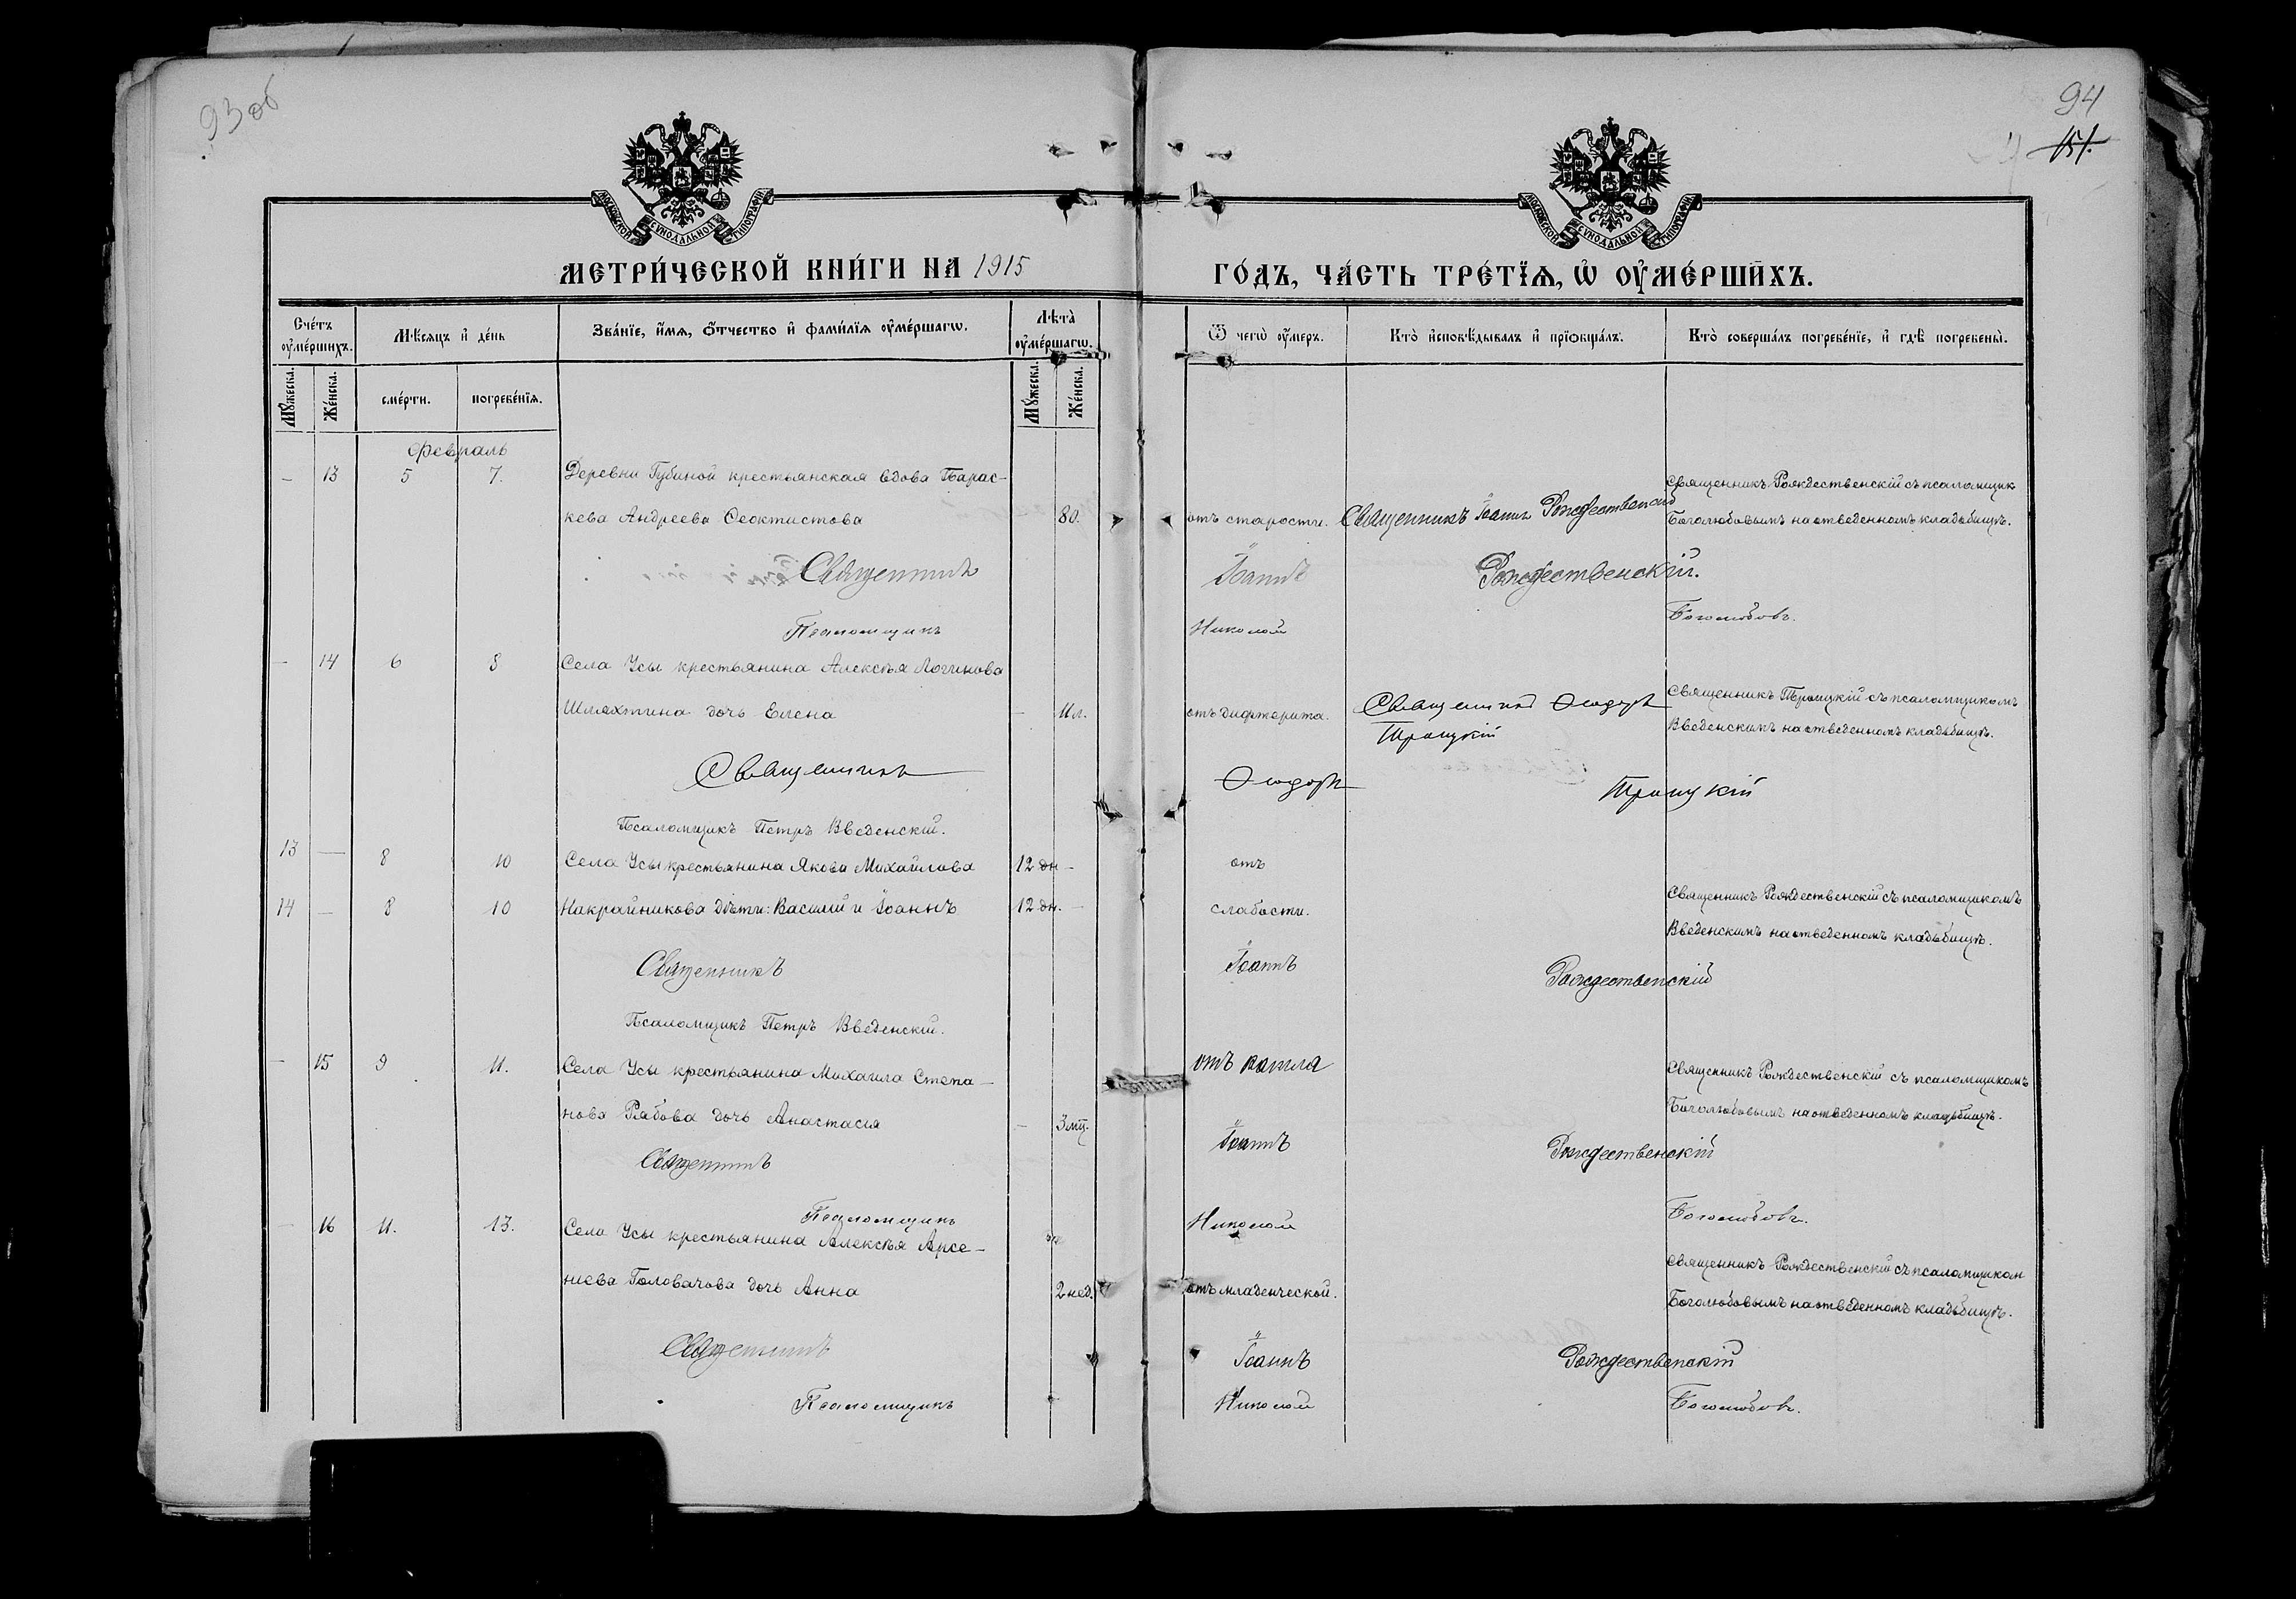 93 об
94
151.
МОСКОВСКОЙ СѴНОДАЛЬНОЙ ТИПОГРАФІИ
МОСКОВСКОЙ СѴНОДАЛЬНОЙ ТИПОГРАФІИ
МЕТРИ́ЧЕСКОЙ КНИ́ГИ НА 1915 ГО́ДЪ, ЧА́СТЬ ТРЕ́ТЇѦ, Ѡ҆ ОУ҆МЕ́РШИХЪ.
Сче́тъ оу҆ме́ршихъ.
Мѣ́сяцъ и҆ де́нь
Зва́нїе, и҆́мя, ѻ҆́тчество и҆ фами́лїя оу҆ме́ршагѡ.
Лѣта̀ оу҆ме́ршагѡ.
Ѿ чегѡ̀ оу҆́меръ.
Кто̀ и҆сповѣ́дывалъ и҆ прїѡбща́лъ.
Кто̀ соверша́лъ погребе́нїе, и҆ гдѣ̀ погребены̀.
Мꙋ́жеска. Же́нска. сме́рти. погребе́нїя. Мꙋ́жеска. Же́нска.
Февраль
– 13 5 7. Деревни Губиной крестьянская вдова Парас-
кева Андреева Феоктистова 80. отъ старости. Священникъ Іоаннъ Рождественскій
Священникъ Рождественскій съ псаломщик
Боголюбовымъ на отведенномъ кладбищѣ.
Священникъ Іоаннъ Рождественскій.
Псаломщикъ Николай Боголюбовъ.
– 14 6 8 Села Усы крестьянина Алексѣя Логинова
Шляхтина дочь Елена – 11 л. отъ дифтерита. Священникъ Ѳеодоръ
Троицкій
Священникъ Троицкій съ псаломщикомъ
Введенскимъ на отведенномъ кладбищѣ.
Священникъ Ѳеодоръ Троицкій
Псаломщикъ Петръ Введенскій.
13 — 8 10 Села Усы крестьянина Якова Михайлова 12 дн – отъ
14 — 8 10 Накрайникова дѣти: Василій и Іоаннъ 12 дн. – слабости.
Священникъ Рождественскій съ псаломщикомъ
Введенскимъ на отведенномъ кладбищѣ.
Священникъ Іоаннъ Рождественскій
Псаломщикъ Петръ Введенскій.
– 15 9 11. Села Усы крестьянина Михаила Степа- отъ кашля
нова Рябова дочь Анастасія – 3 мц.
Священникъ Рождественскій съ псаломщикомъ
Боголюбовымъ на отведенномъ кладбищѣ.
Священникъ Іоаннъ Рождественскій
Псаломщикъ Николай Боголюбовъ.
– 16 11. 13. Села Усы крестьянина Алексѣя Арсе-
ніева Головачова дочь Анна 2 нед. отъ младенческой.
Священникъ Рождественскій съ псаломщиком
Боголюбовымъ на отведенномъ кладбищѣ.
Священникъ Іоаннъ Рождественскій
Псаломщикъ Николай Боголюбовъ.